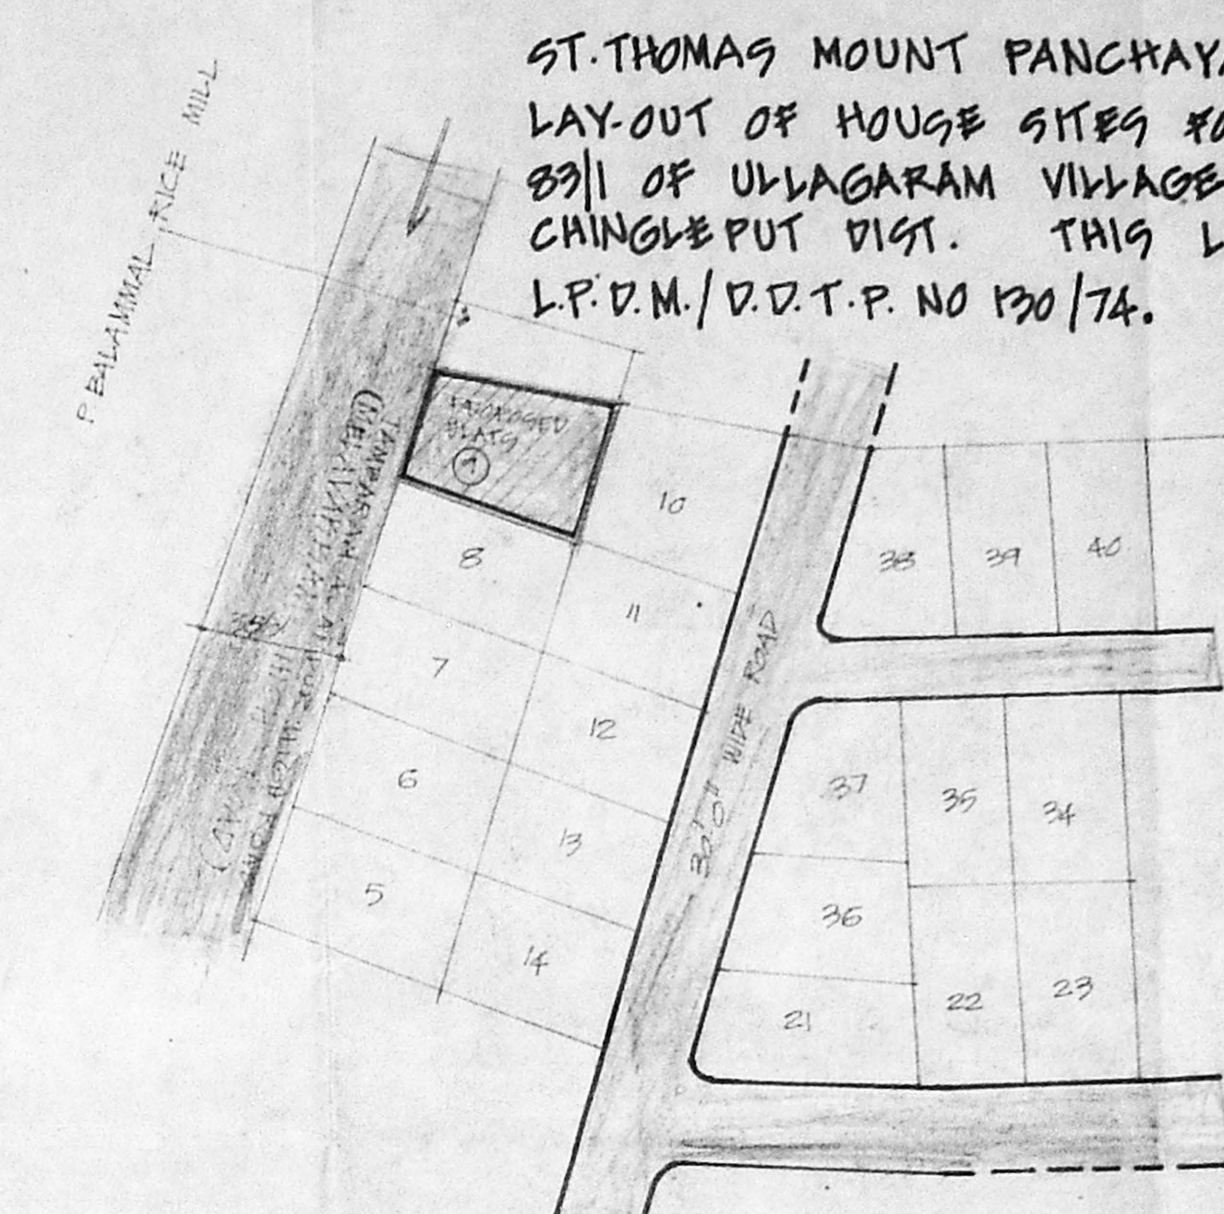 ST. THOMAS MOUNT PANCHAYA
LAY-OUT OF HOUSE SITES FO
83/1 OF ULLAGARAM VILLAGE
CHINGLEPUT DIST. THIS L
L.P.D.M./D.D.T.P. NO 130/74.
P BALAMMAL RICE MILL
PROPOSED
FLATS
9
8
7
6
5
10
11
12
13
14
30'0" WIDE ROAD
38
39
40
37
35
34
36
21
22
23